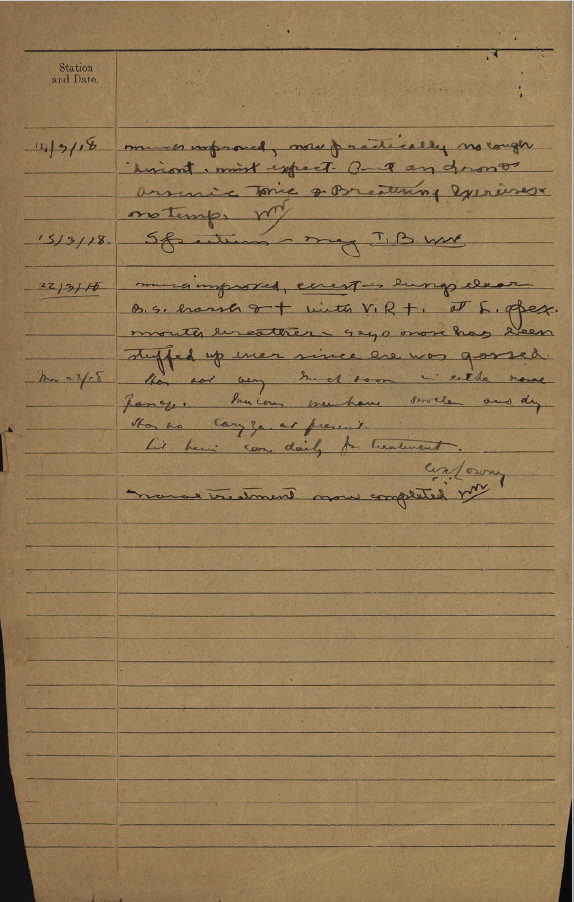 Station
and Date.
14/3/18 much improved, now practically no cough
Put on
arsenic tonic & Breathing Exercises
no temp.
15/3/18. T.B
22/3/18 much improved, chest & lungs clear
B.S. harsh & + with V.R +. at L. apex.
mouth breather - says nose has been
stuffed up ever since he was gassed.
Mar 23/18 Has not very much room in either nasal
passage. Mucous membrane swollen and dry
Has no Coryza at present.
Let him come daily for treatment.
nasal treatment now completed